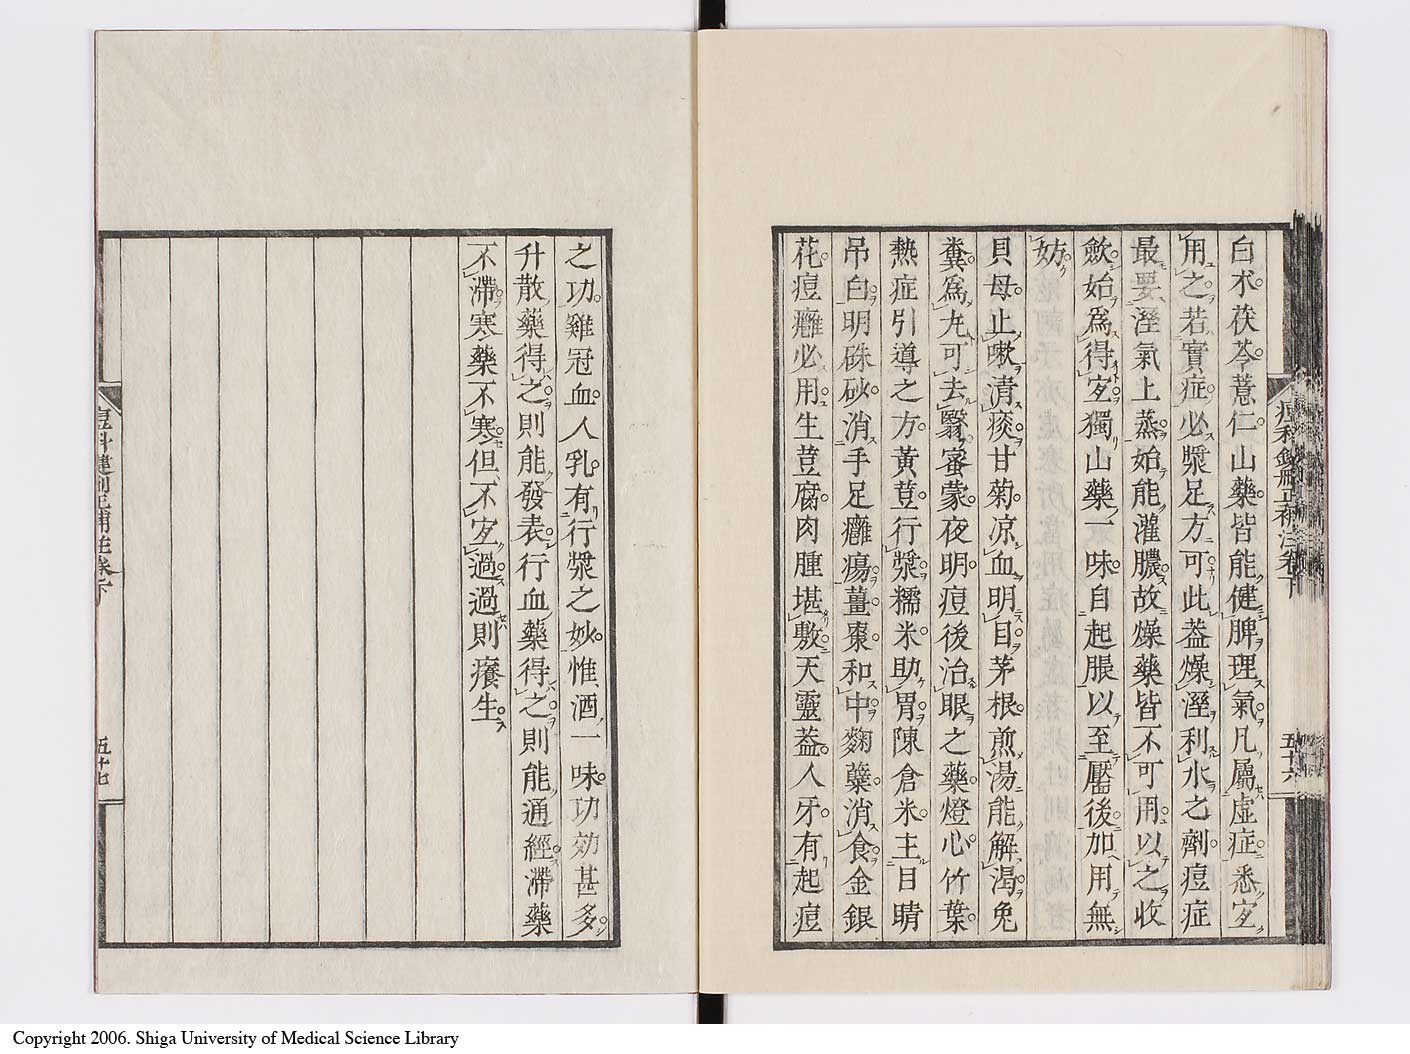 白朮茯苓薏仁山藥皆能健脾理氣凡屬虛症悉宜
用之若實症必漿足方可此葢燥溼利水之劑痘症
最要溼氣上蒸始能灌膿故燥藥皆不可用以之收
斂始爲得宜獨山藥一味自起脹以至靨後加用無
妨
貝母止嗽清痰甘菊凉血明目茅根煎湯能解渴兔
糞爲丸可去翳蜜蒙夜明痘後治眼之藥燈心竹葉
熱症引導之方黃荳行漿糯米助胃陳倉米主目睛
吊白明硃砂消手足癰瘍薑棗和中麴蘗消食金銀
花痘癰必用生荳腐肉腫堪敷天靈葢人牙有起痘
五十六
之功雞冠血人乳有行漿之妙惟酒一味功効甚多
升散藥得之則能發表行血藥得之則能通經滯藥
不滯寒藥不寒但不宜過過則癢生
痘科鍵刪正補註卷下
五十七
Copyright 2006. Shiga University of Medical Science Library